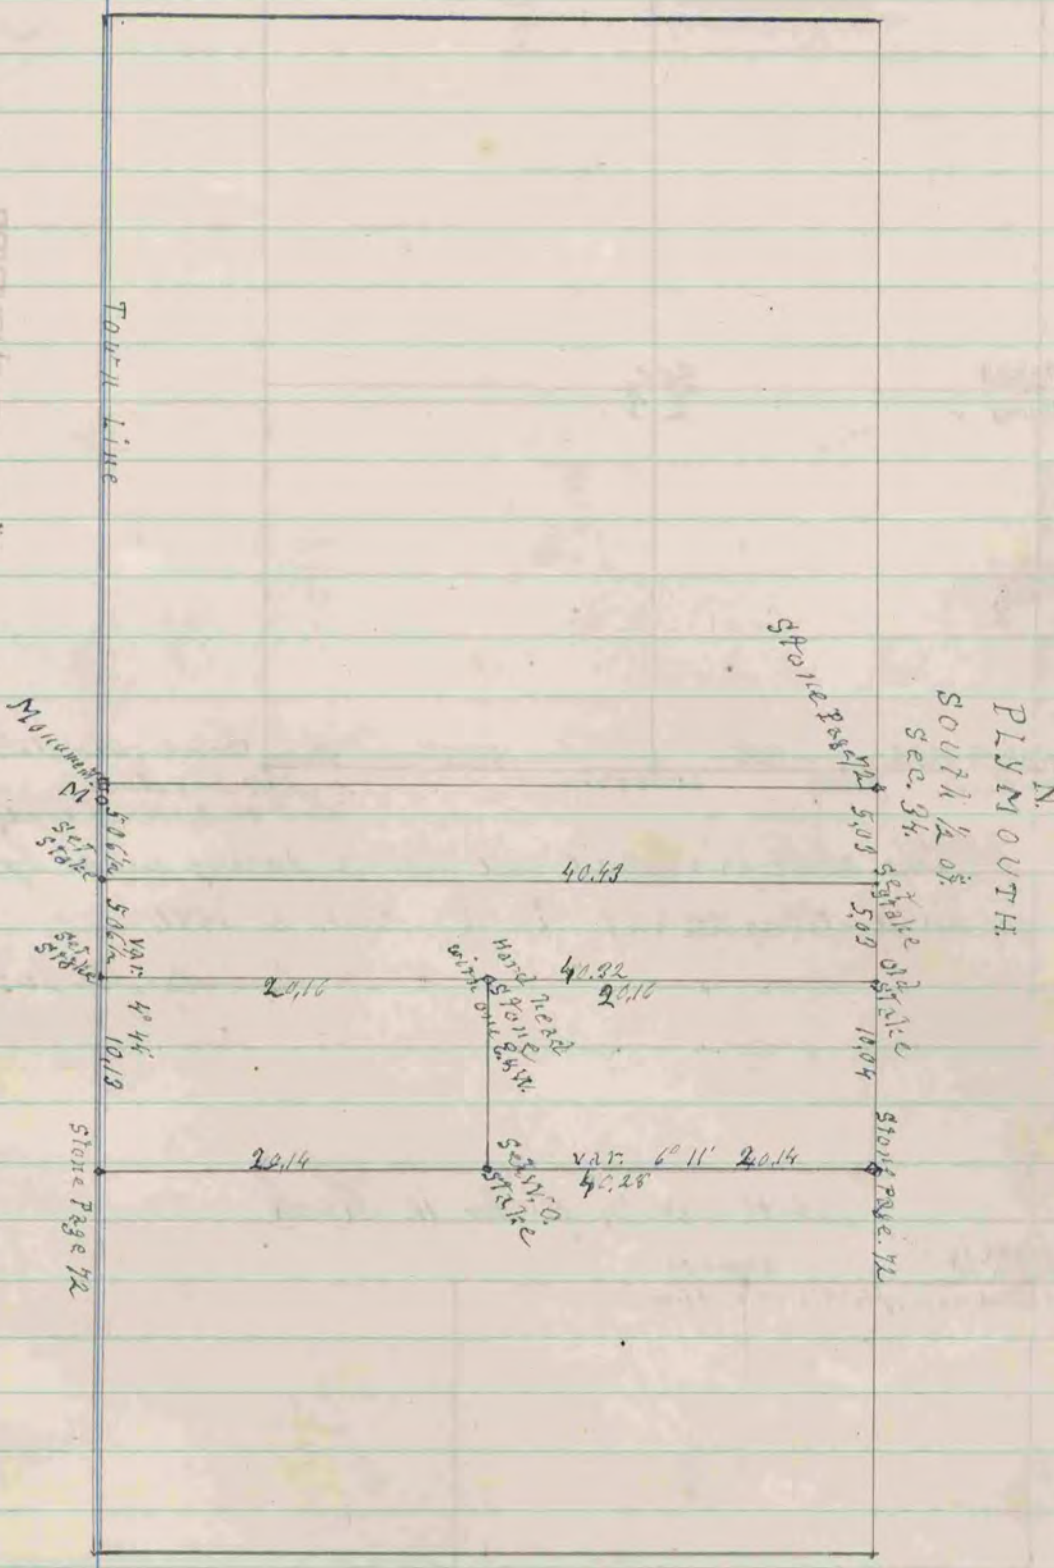 N.
PLYMOUTH.
South 1/2 of.
Sec. 34.
Stone Page 72
5,09
Stake
5,09
old stake
10,04
Stone Page. 72
40.43
40.32
20,16
20,16
Hard head
Stone
Set
Stake
var. 6° 11'
20.14
20.14
40.28
Town Line
Monument.
M
5,06½
Set
Stake
5,06½
Set
Stake
var.
4° 44'
10,13
Stone Page 72